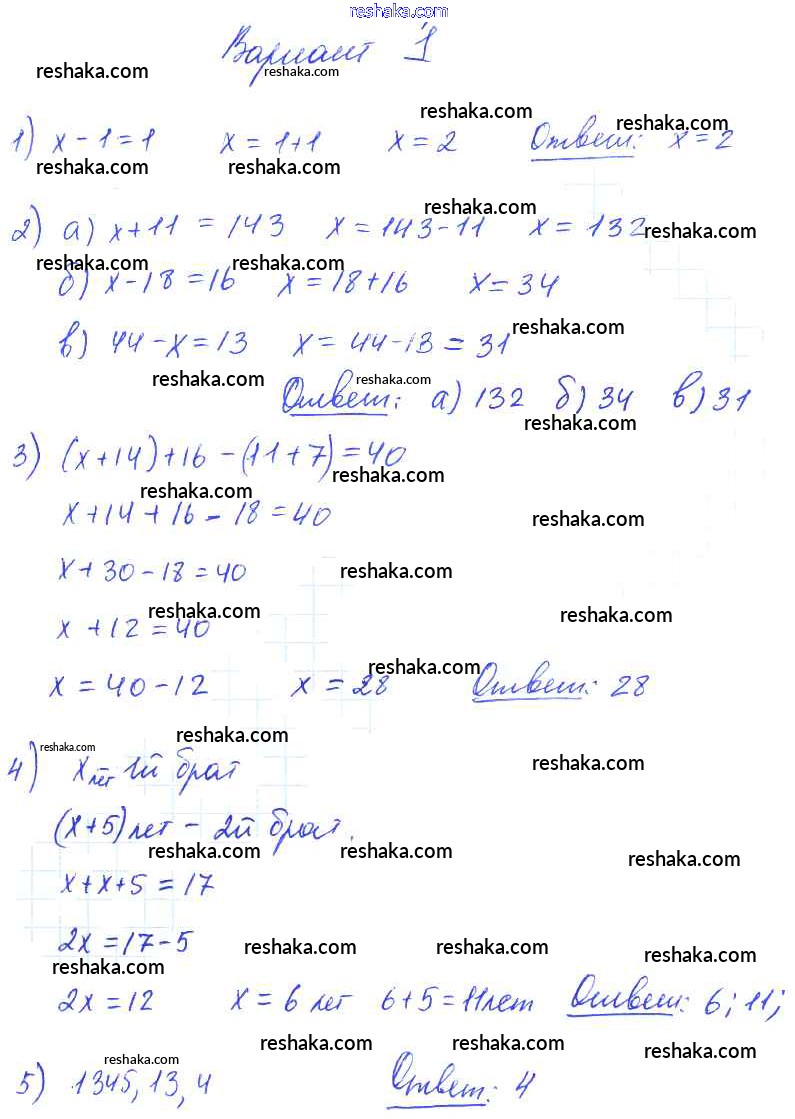 reshaka.com
Вариант 1
reshaka.com reshaka.com
reshaka.com reshaka.com
1) x - 1 = 1 x = 1+1 x = 2 Ответ: x = 2
reshaka.com reshaka.com
reshaka.com
2) а) x + 11 = 143 x = 143 - 11 x = 132 reshaka.com
reshaka.com reshaka.com
б) x - 18 = 16 x = 18 + 16 x = 34
reshaka.com
в) 44 - x = 13 x = 44 - 13 = 31
reshaka.com reshaka.com
Ответ: а) 132 б) 34 в) 31
reshaka.com
3) (x + 14) + 16 - (11 + 7) = 40
reshaka.com
reshaka.com
x + 14 + 16 - 18 = 40 reshaka.com
x + 30 - 18 = 40 reshaka.com
reshaka.com reshaka.com
x + 12 = 40
reshaka.com
x = 40 - 12 x = 28 Ответ: 28
reshaka.com
reshaka.com
4) x лет 1й брат reshaka.com
(x + 5) лет - 2й брат.
reshaka.com reshaka.com reshaka.com
x + x + 5 = 17
2x = 17 - 5 reshaka.com reshaka.com reshaka.com
reshaka.com
2x = 12 x = 6 лет 6 + 5 = 11 лет Ответ: 6; 11;
reshaka.com reshaka.com reshaka.com
reshaka.com
5) 1345, 13, 4 Ответ: 4